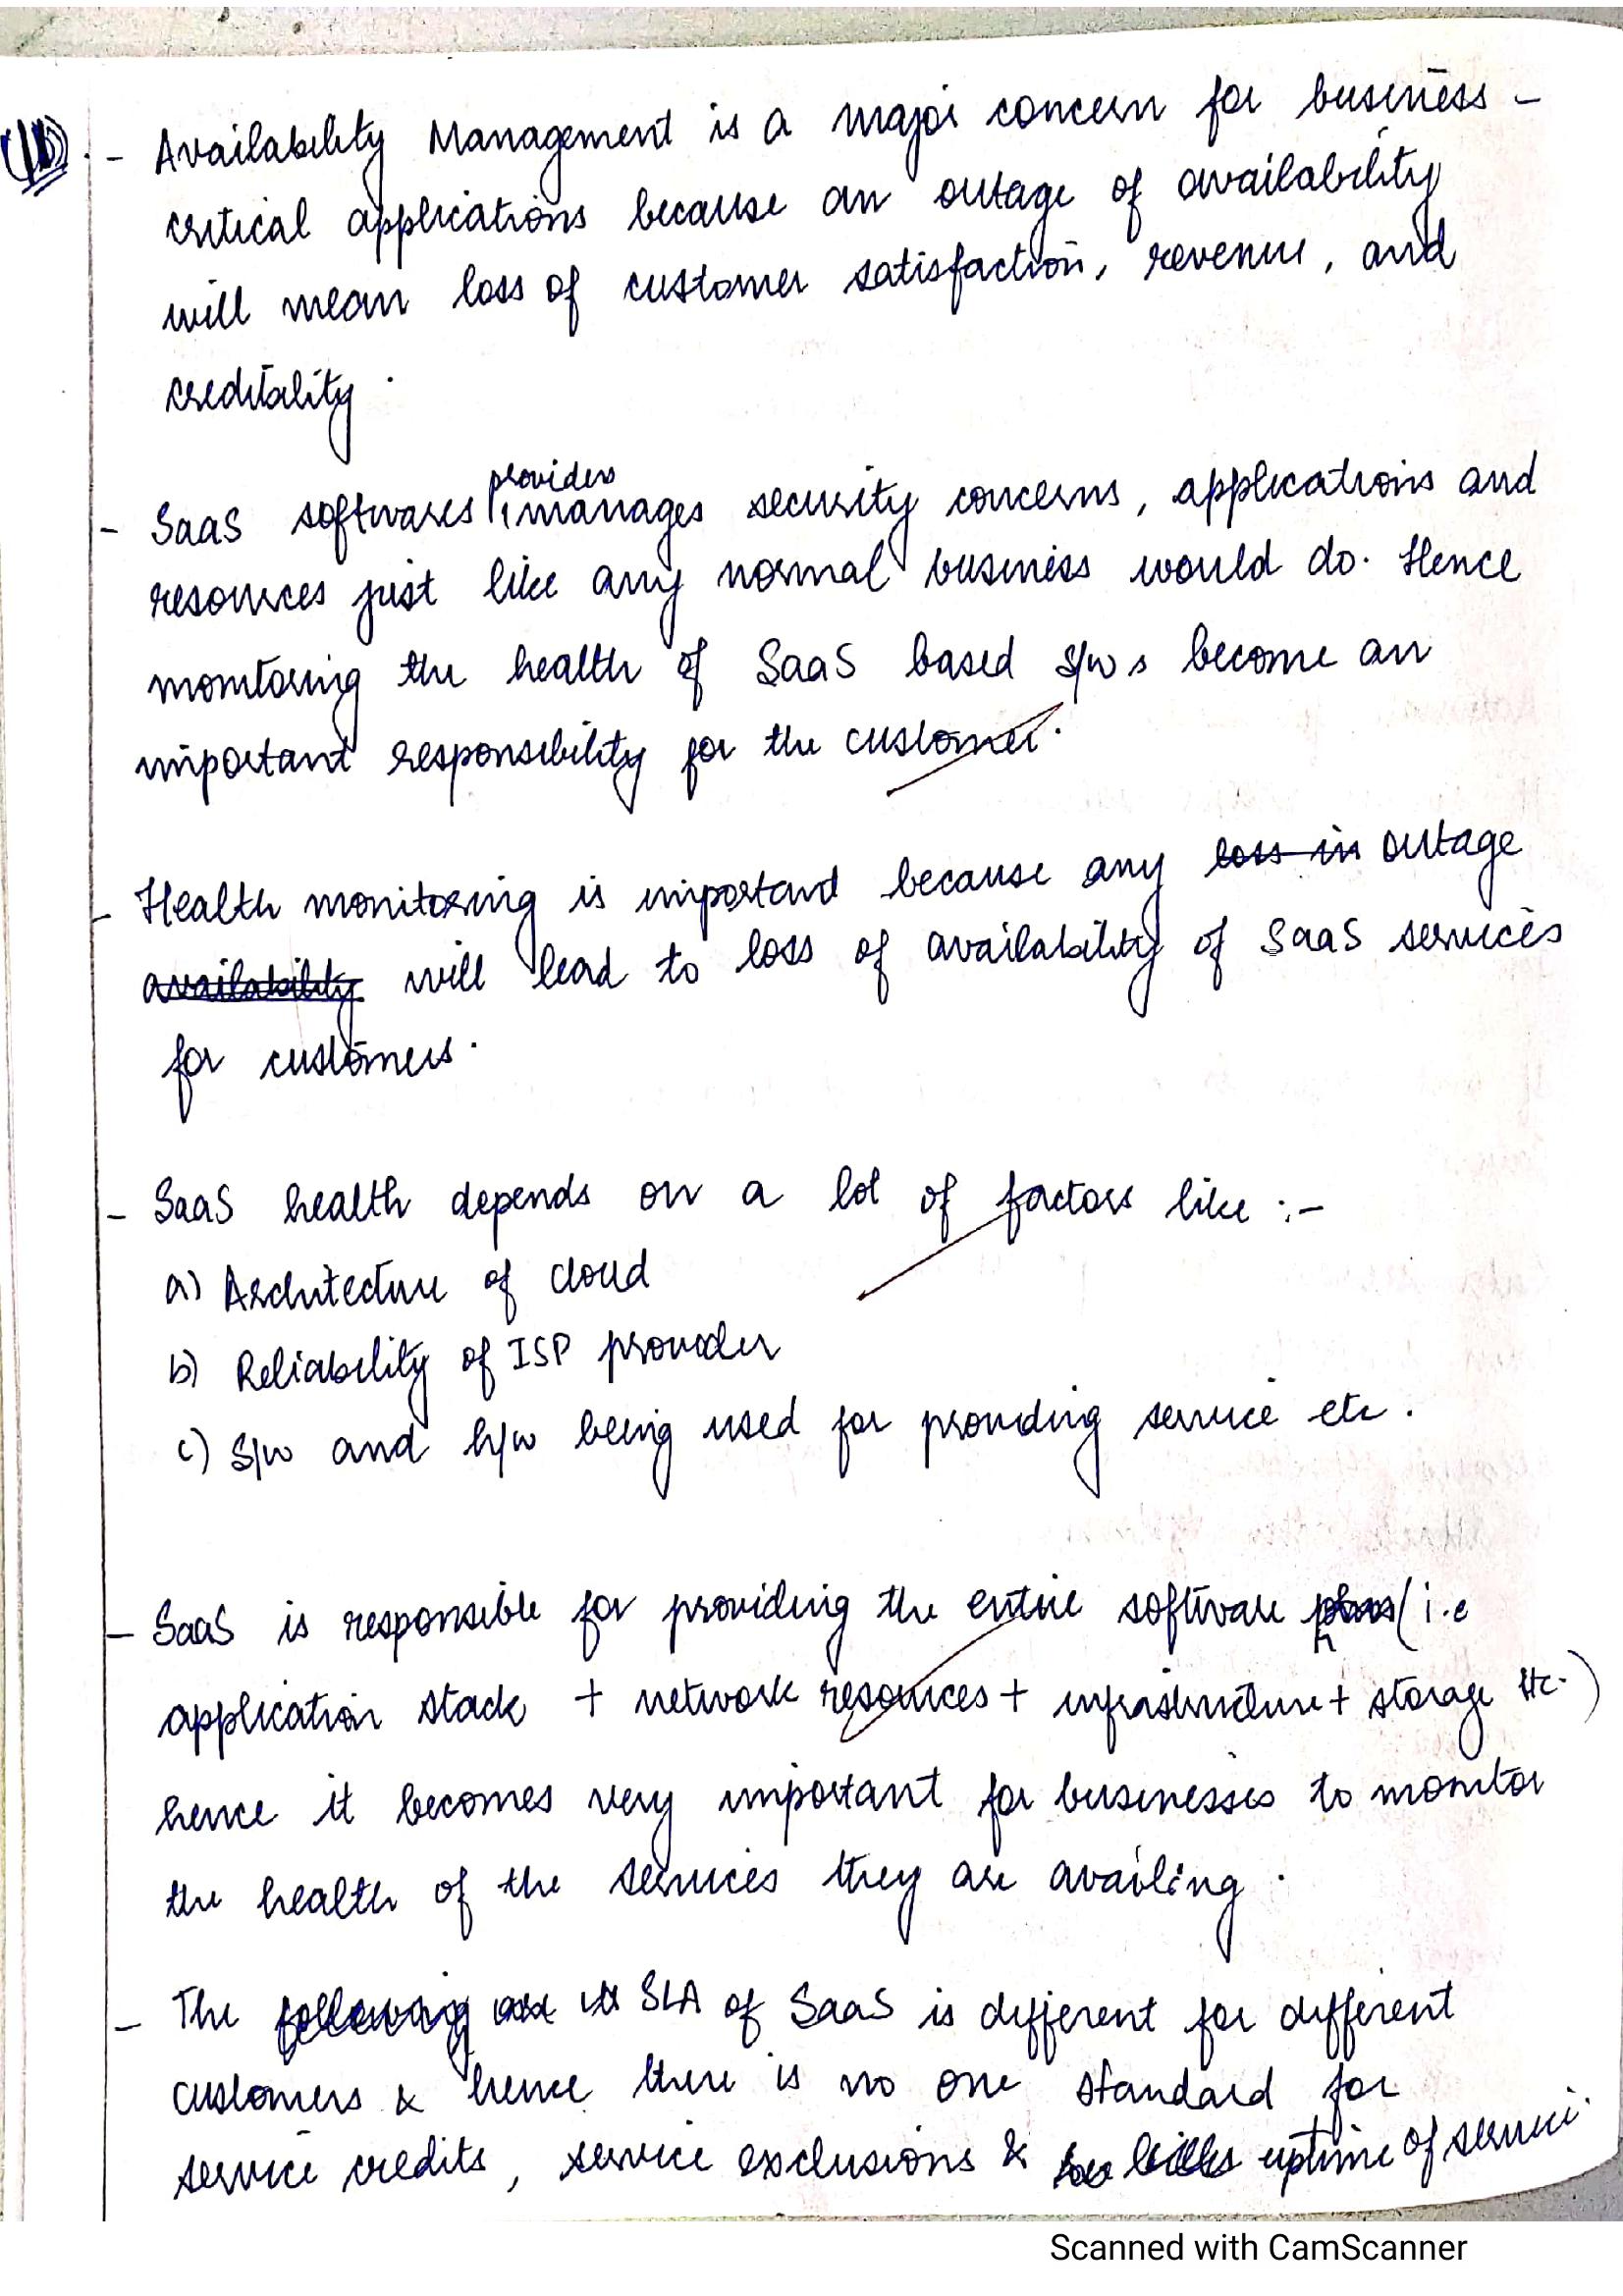 1b) - Availability Management is a major concern for business -
critical applications because an outage of availability
will mean loss of customer satisfaction, revenue, and
creditality.
providers
- SaaS softwares manages security concerns, applications and
resources just like any normal business would do. Hence
monitoring the health of SaaS based s/w s become an
important responsibility for the customer.
- Health monitoring is important because any loss in outage
availability will lead to loss of availability of SaaS services
for customers.
- SaaS health depends on a lot of factors like :-
a) Architecture of cloud
b) Reliability of ISP provider
c) S/w and h/w being used for providing service etc.
- SaaS is responsible for providing the entire software (i.e
application stack + network resources + infrastructure + storage etc.)
hence it becomes very important for businesses to monitor
the health of the services they are availing.
- The following are SLA of SaaS is different for different
customers & hence there is no one standard for
service credits, service exclusions & uptime of service.
Scanned with CamScanner